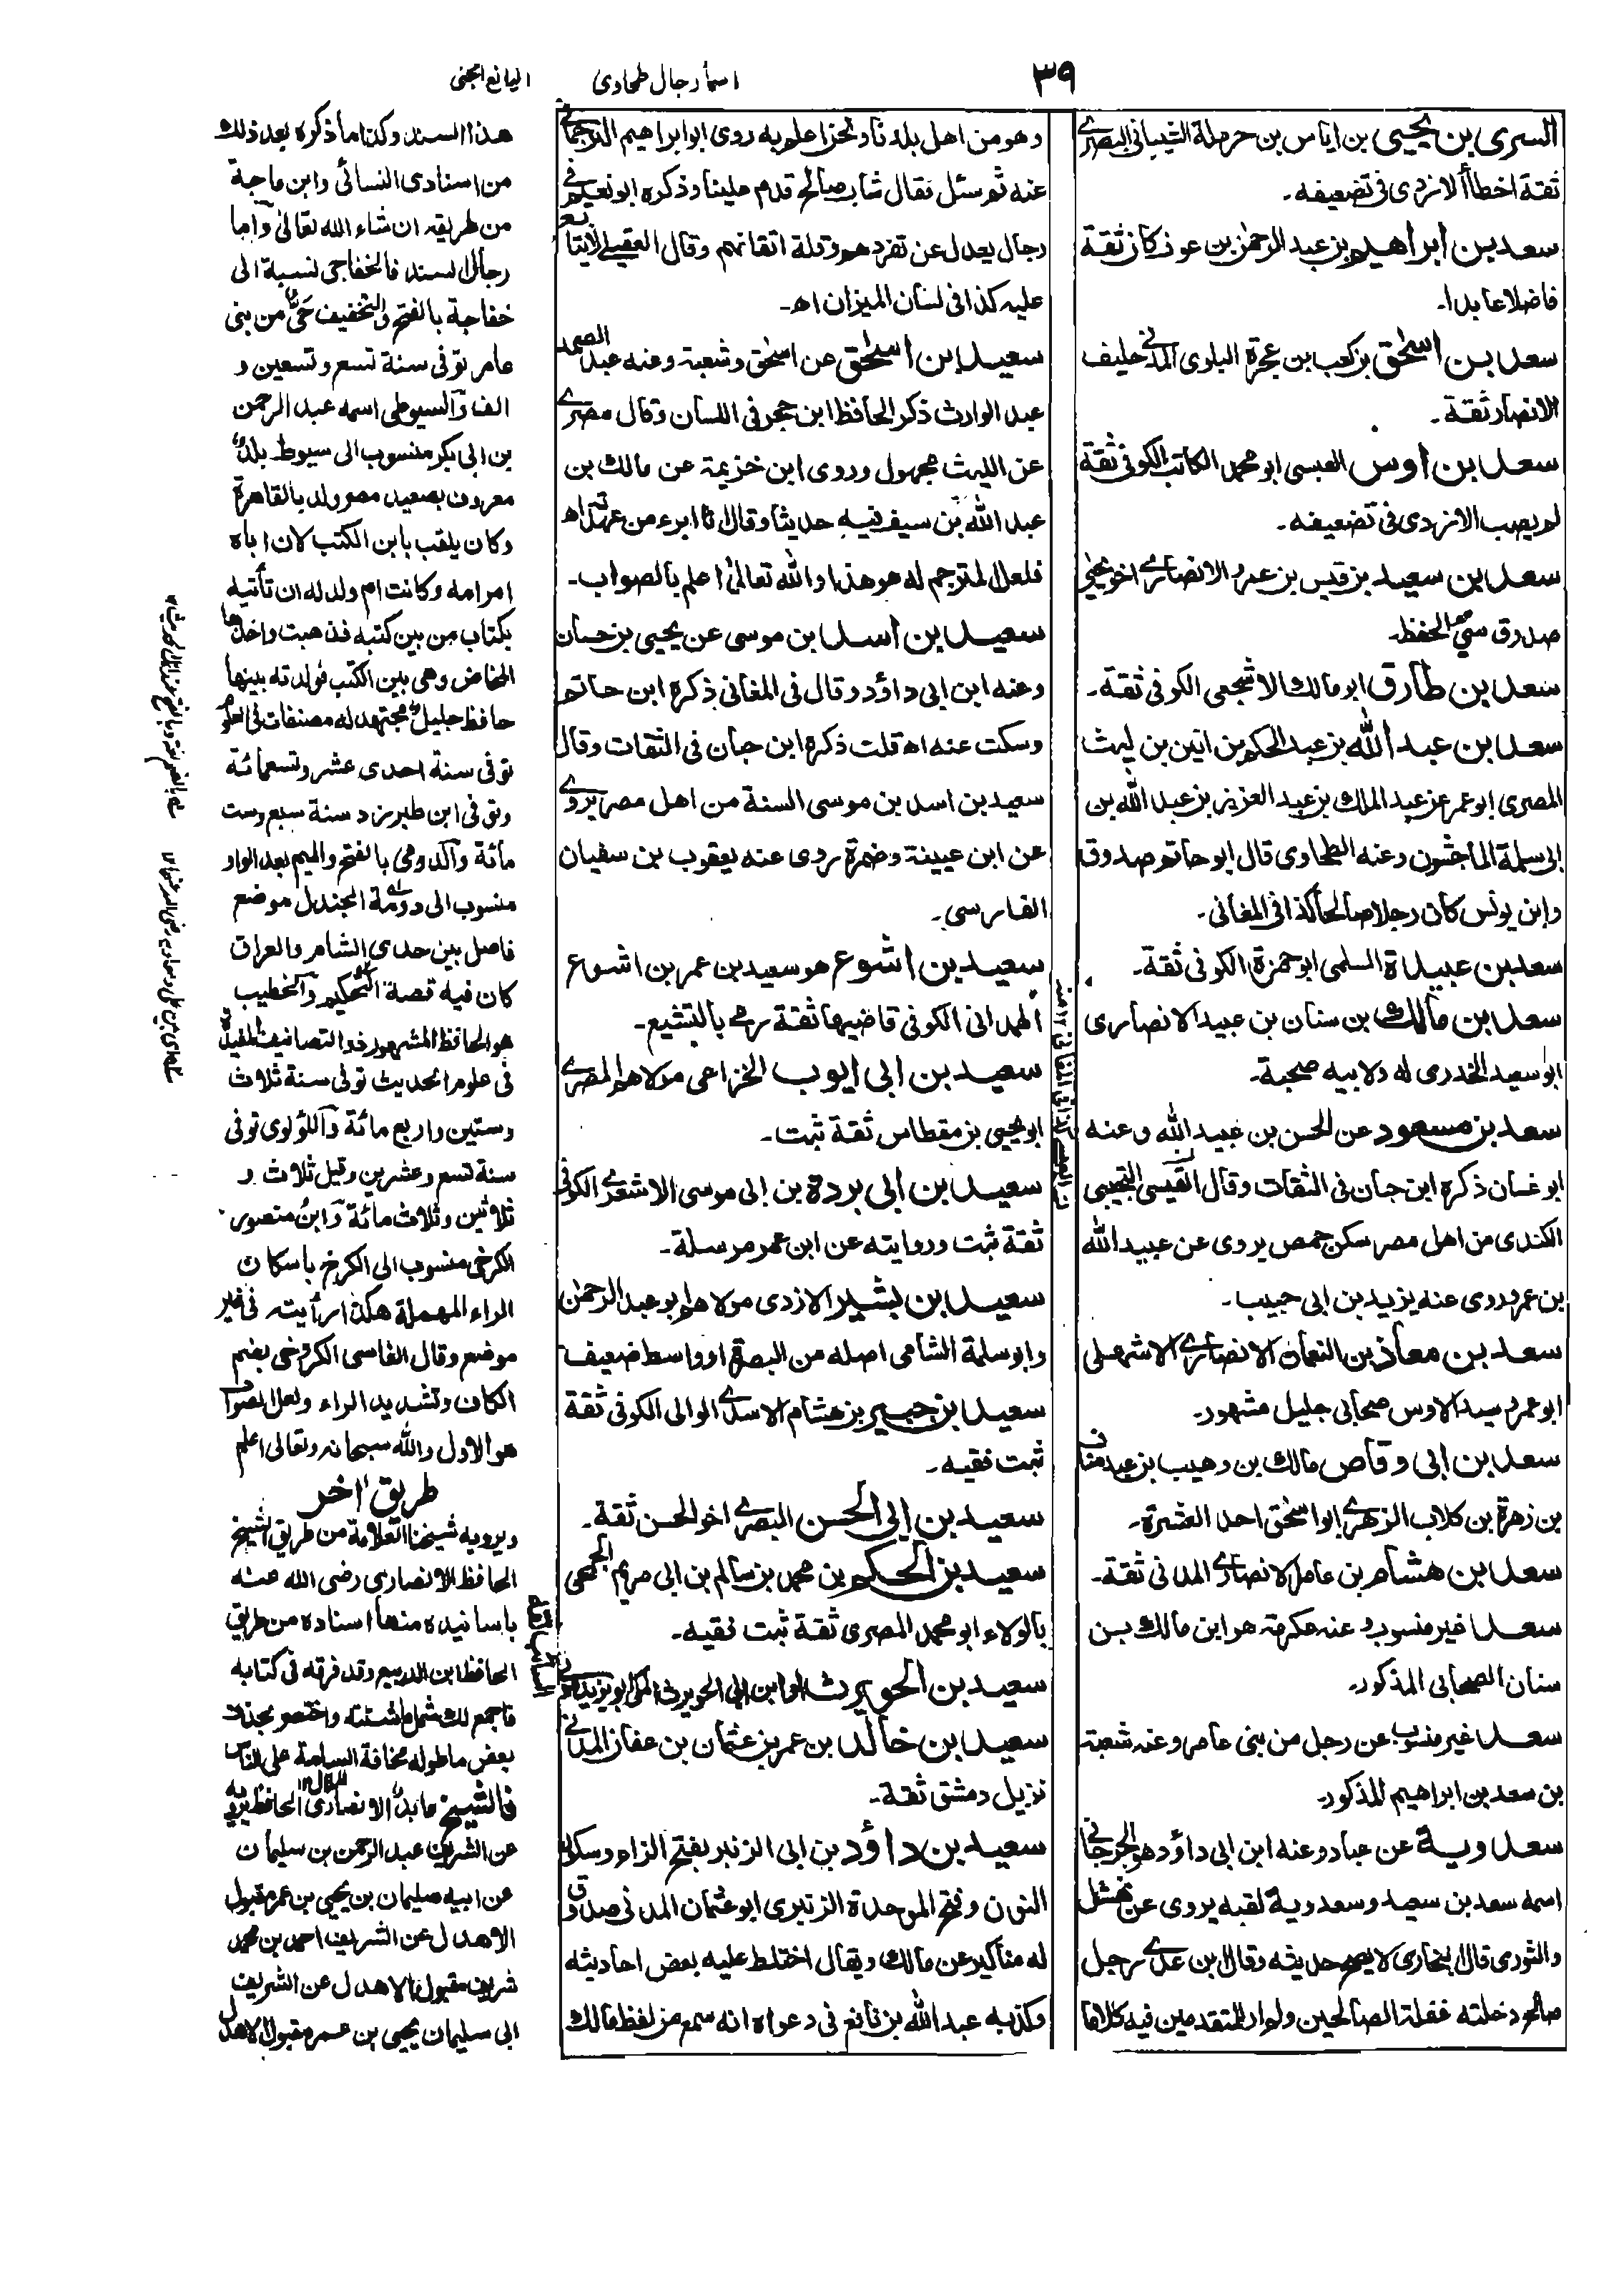 ٣٩
اسماء رجال طحاوى
اليانع الجنى
السرى بن يحيى بن اياس بن حرملة الشيبانى البصرى
ثقة اخطأ الازدى فى تضعيفه۔
سعد بن ابراهيم بن عبد الرحمٰن بن عوف كان ثقة
فاضلا عابدا۔
سعد بن اسحٰق بن كعب بن عجرة البلوى المدنى حليف
الانصار ثقة۔
سعد بن اوس العبسى ابو محمد الكاتب الكوفى ثقة
لم يصب الازدى فى تضعيفه۔
سعد بن سعيد بن قيس بن عمرو الانصارى اخو يحيى
صدوق سيئ الحفظ۔
سعد بن طارق ابو مالك الاشجعى الكوفى ثقة۔
سعد بن عبد الله بن عبد الحكم بن اعين بن ليث
المصرى ابو عمر عن عبد الملك بن عبد العزيز بن عبد الله بن
ابى سلمة الماجشون وعنه الطحاوى قال ابو حاتم صدوق
وابن يونس كان رجلا صالحا كذا فى المغانى۔
سعد بن عبيدة السلمى ابو حمزة الكوفى ثقة۔
سعد بن مالك بن سنان بن عبيد الانصارى
ابو سعيد الخدرى له ولابيه صحبة۔
سعد بن مسعود عن الحسن بن عبيد الله وعنه
ابو غسان ذكره ابن حبان فى الثقات وقال القيسى التجيبى
الكندى من اهل مصر سكن حمص يروى عن عبيد الله
بن عمر وروى عنه يزيد بن ابى حبيب۔
سعد بن معاذ بن النعمان الانصارى الاشهلى
ابو عمرو سيد الاوس صحابى جليل مشهور۔
سعد بن ابى وقاص مالك بن وهيب بن عبد مناف
بن زهرة بن كلاب الزهرى ابو اسحٰق احد العشرة۔
سعد بن هشام بن عامر الانصارى المدنى ثقة۔
سعد غير منسوب وعنه عكرمة هو ابن مالك بن
سنان الصحابى المذكور۔
سعد غير منسوب عن رجل من بنى عامر وعنه شعبة
بن سعد بن ابراهيم المذكور۔
سعدوية عن عباد وعنه ابن ابى داؤد هو الجرجانى
اسمه سعد بن سعيد وسعدوية لقبه يروى عن نهشل
والثورى قال البخارى لا يصح حديثه وقال ابن عدى رجل
صالح دخلته غفلة الصالحين ولم ار للمتقدمين فيه كلاما
وهو من اهل بلدنا ونحن اعلم به روى ابو ابراهيم الترجمانى
عنه ثم سئل فقال شاب صالح قدم علينا وذكره ابو نعيم فى
رجال يعدل عن تفردهم وقلة اتقانهم وقال العقيلى لا يتابع
عليه كذا فى لسان الميزان اه۔
سعيد ابن اسحٰق عن اسحٰق وشعبة وعنه عبد الصمد
عبد الوارث ذكر الحافظ ابن حجر فى اللسان وقال مصرى
عن الليث مجهول وروى ابن خزيمة عن مالك بن
عبد الله بن سيف فيه حديثا وقال انا ابرء من عهدته اه
فلعل المترجم له هو هذا والله تعالىٰ اعلم بالصواب۔
سعيد بن اسد ابن موسى عن يحيى بن حسان
وعنه ابن ابى داؤد وقال فى المغانى ذكره ابن حاتم
وسكت عنه اه قلت ذكره ابن حبان فى الثقات وقال
سعيد بن اسد بن موسى السنة من اهل مصر يروى
عن ابن عيينة وضمرة روى عنه يعقوب بن سفيان
الفارسى۔
سعيد بن اشوع هو سعيد بن عمر بن اشوع
الهمدانى الكوفى قاضيها ثقة رمى بالتشيع۔
سعيد بن ابى ايوب الخزاعى مولاهم المصرى
ابو يحيى بن مقلاص ثقة ثبت۔
سعيد بن ابى بردة بن ابى موسى الاشعرى الكوفى
ثقة ثبت وروايته عن ابن عمر مرسلة۔
سعيد بن بشير الازدى مولاهم ابو عبد الرحمٰن
وابو سلمة الشامى اصله من البصرة او واسط ضعيف
سعيد بن جبير بن هشام الاسدى الوالى الكوفى ثقة
ثبت فقيه۔
سعيد بن ابى الحسن البصرى اخو الحسن ثقة۔
سعيد بن الحكم بن محمد بن سالم بن ابى مريم الجمحى
بالولاء ابو محمد المصرى ثقة ثبت فقيه۔
سعيد بن الحويرث او ابن ابى الحويرث المكى ابو يزيد
سعيد بن خالد بن عمر بن عثمان بن عفان المدنى
نزيل دمشق ثقة۔
سعيد بن داؤد بن ابى الزنبر بفتح الزاء وسكون
النون وفتح الموحدة الزنبرى ابو عثمان المدنى صدوق
له مناكير عن مالك ويقال اختلط عليه بعض احاديثه
وكذبه عبد الله بن نافع فى دعواه انه سمع من لفظ مالك
هذا السند وكذا ما ذكره بعد ذلك
من اسنادى النسائى وابن ماجة
من طريقه ان شاء الله تعالىٰ وآما
رجال السند فالخفاجى نسبة الى
خفاجة بالفتح والتخفيف حى من بنى
عامر توفى سنة تسع وتسعين و
الف وآلسيوطى اسمه عبد الرحمن
بن ابى بكر منسوب الى سيوط بلد
معروف بصعيد مصر ولد بالقاهرة
وكان يلقب بابن الكتب لان اباه
امر امه وكانت ام ولد له ان تأتيه
بكتاب من بين كتبه فذهبت واخذها
المخاض وهى بين الكتب فولدته بينها
حافظ جليل مجتهد له مصنفات فى العلوم
توفى سنة احدى عشر وتسعمائة
وتوفى ابن طبرزد سنة سبع وست
مائة وآلدومى بالفتح والميم بعد الواو
منسوب الى دومة الجندل موضع
فاصل بين حدى الشام والعراق
كان فيه قصة التحكيم وآلخطيب
هو الحافظ المشهور ذو التصانيف المفيدة
فى علوم الحديث توفى سنة ثلاث
وستين واربع مائة وآللؤلوى توفى
سنة تسع وعشرين وقيل ثلاث و
ثلاثين وثلاث مائة وآبن منصور
الكرخى منسوب الى الكرخ باسكان
الراء المهملة هكذا رأيته فى غير
موضع وقال الفاسى الكروخى بضم
الكاف وتشديد الراء ولعل الصواب
هو الاول والله سبحانه وتعالى اعلم
طريق اٰخر
ويرويه شيخنا العلامة من طريق الشيخ
الحافظ الانصارى رضى الله عنه
باسانيده منها اسناده من طريق
الحافظ ابن الديبع وقد فرقه فى كتابه
فاجمع لك شمل ما شتته واختصر بحذف
بعض ما طوله مخافة السامة على الناس
فالشيخ عابد الانصارى الحافظ يرويه
عن الشريف عبد الرحمن بن سليمان
عن ابيه سليمان بن يحيى بن عمر مقبول
الاهدل عن الشريف احمد بن محمد
شريف مقبول الاهدل عن الشريف
ابى سليمان يحيى بن عمر مقبول الاهدل